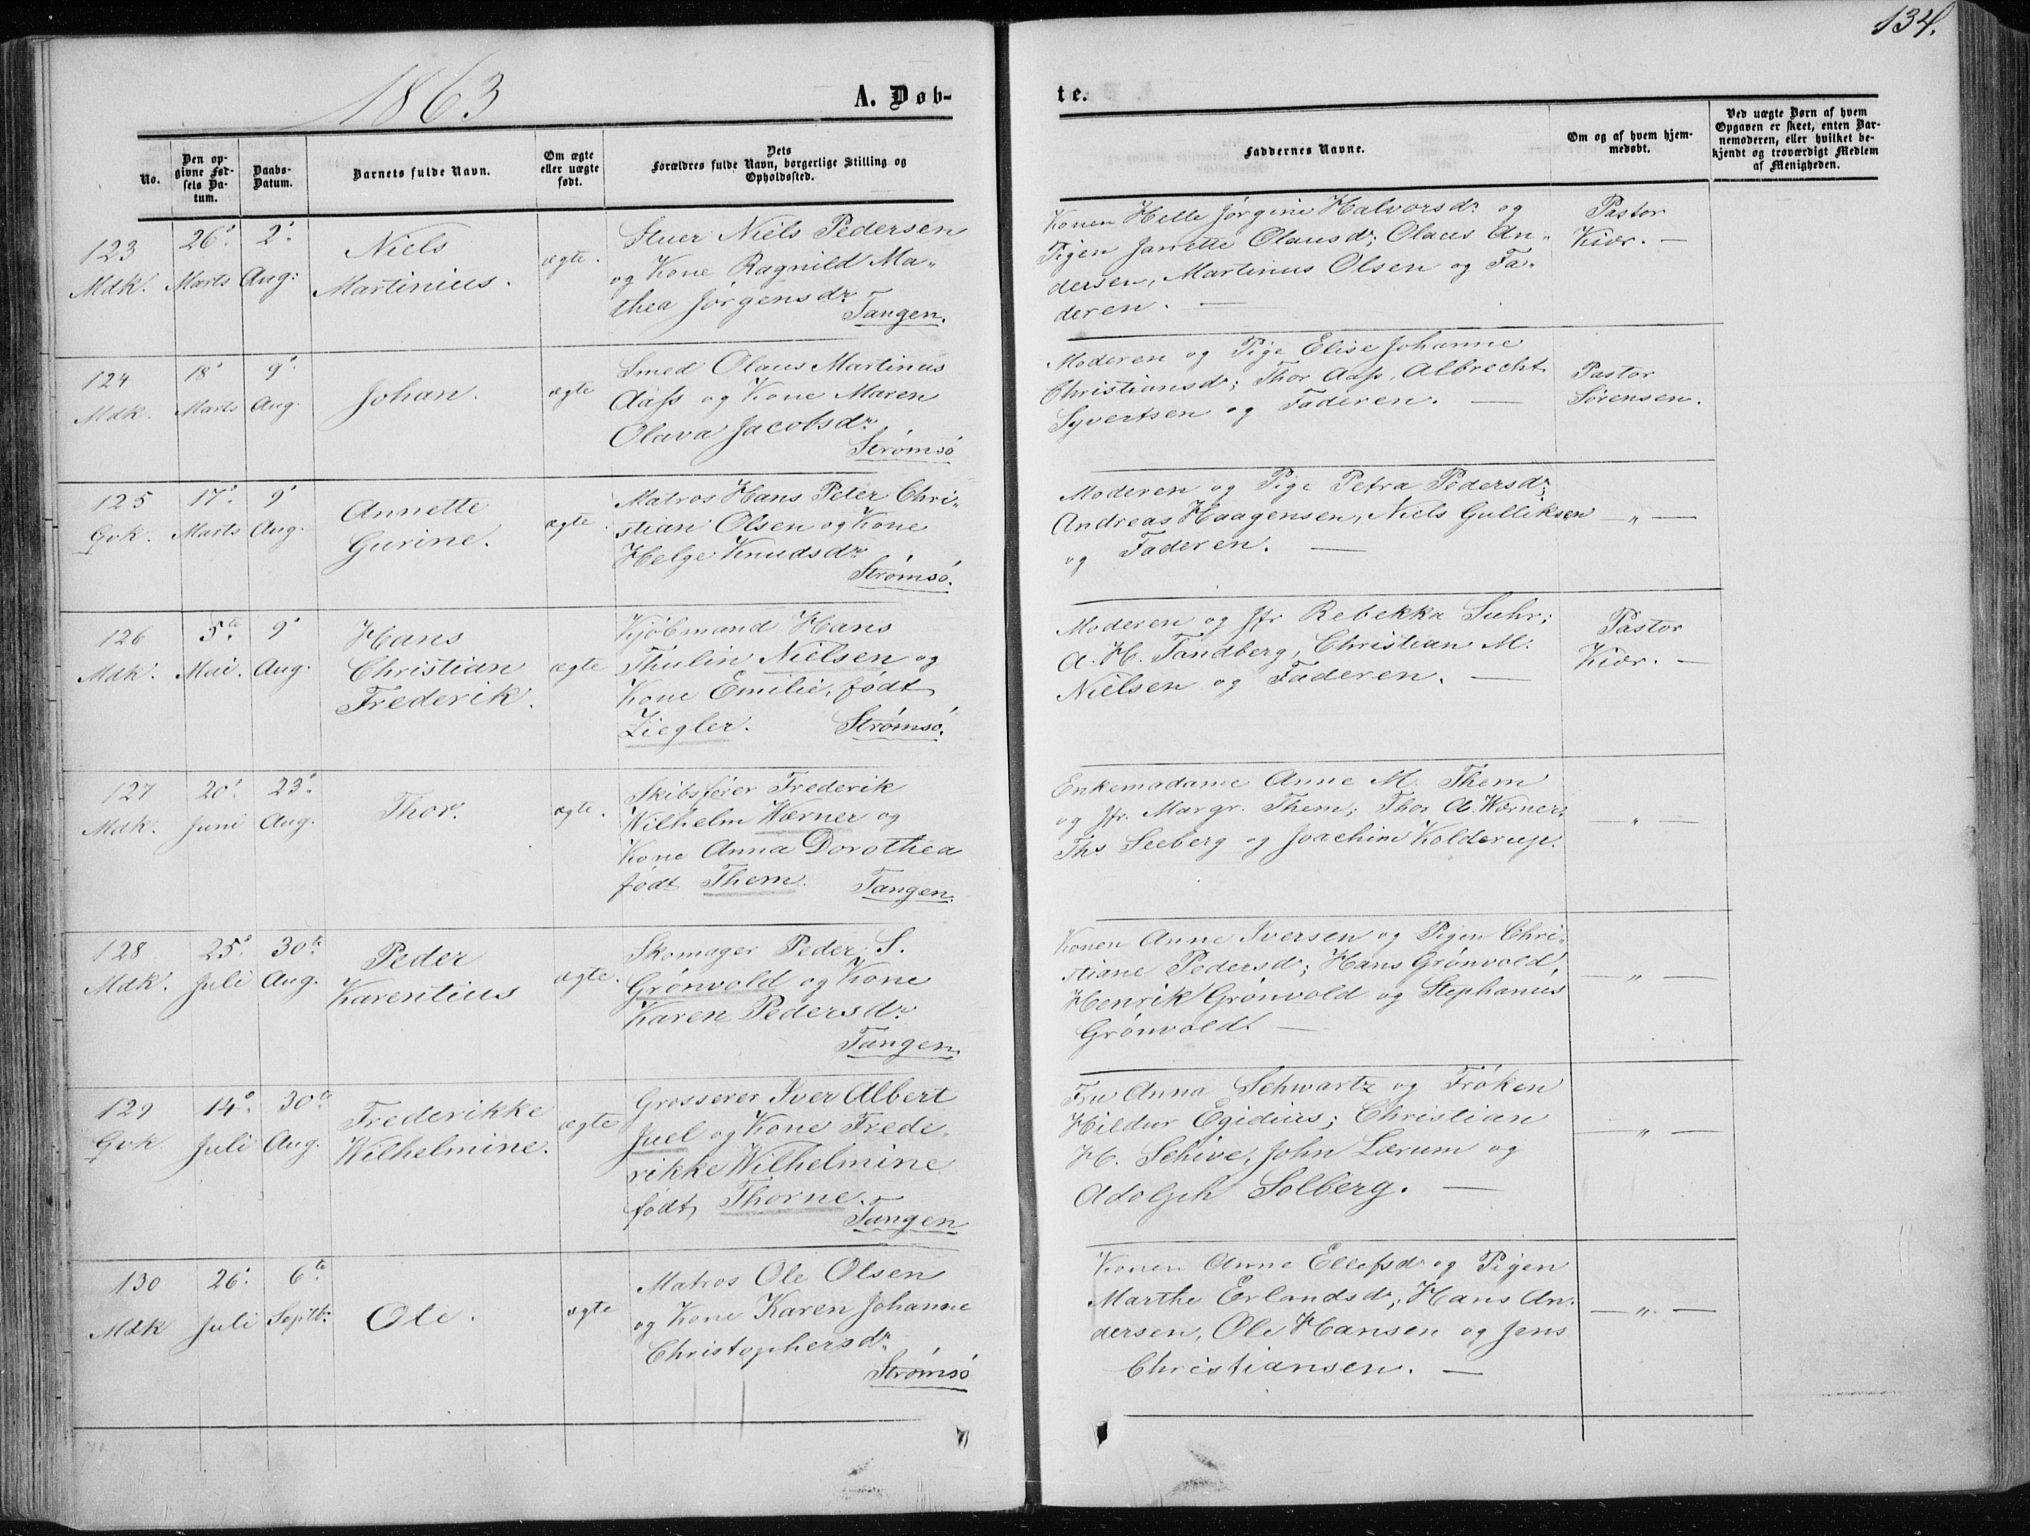 134.
1863
A. Døb-
te.
No.
Den op-
givne Fød-
sels Da-
tum.
Daabs-
Datum.
Barnets fulde Navn.
Om ægte
eller uægte
født.
Dets
Forældres fulde Navn, borgerlige Stilling og
Opholdssted.
Faddernes Navne.
Om og af hvem hjem-
medøbt.
Ved uægte Børn af hvem
Opgaven er skeet, enten Bar-
nemoderen, eller hvilket be-
kjendt og troværdigt Medlem
af Menigheden.
123
Mdk.
26'
Marts
2'
Aug:
Niels
Martinius.
ægte.
Stuer Niels Pedersen
og Kone Ragnild Ma-
thea Jørgensdr
Tangen.
Konen Helle Jørgine Halvorsdr og
Pigen Janette Olausdr; Olaus An-
dersen, Martinus Olsen og Fa-
deren. —
Pastor
Kiær. —
124
Mdk.
18'
Marts
9'
Aug.
Johan.
ægte
Smed Olaus Martinus
Aass og Kone Maren
Olava Jacobsdr
Strømsö
Moderen og Pige Elise Johanne
Christiansdr; Thor Aass, Albrecht
Syvertsen og Faderen. —
Pastor
Sørensen.
125
Qvk.
17'
Marts
9'
Aug.
Annette
Gurine.
ægte.
Matros Hans Peter Chri-
stian Olsen og Kone
Helge Knudsdr
Strømsö.
Moderen og Pige Petra Pedersdr;
Andreas Haagensen, Niels Gulliksen
og Faderen. —
— „ —
126
Mdk.
5te
Mai.
9'
Aug.
Hans
Christian
Frederik.
ægte
Kjøbmand Hans
Thulin Nielsen og
Kone Emilie, født
Ziegler. Strømsö.
Moderen og Jfr Rebekka Suhr;
A. H. Tandberg, Christian M.
Nielsen og Faderen. —
Pastor
Kiær. —
127
Mdk.
20'
Juni
23'
Aug.
Thor.
ægte.
Skibsfører Frederik
Wilhelm Wærner og
Kone Anna Dorothea
født Them. Tangen.
Enkemadame Anne M. Them
og Jfr. Margr. Them; Thor A. Wærner,
Ths Seeberg og Joachim Kolderup.
— „ —
128
Mdk.
25'
Juli
30te
Aug.
Peder
Karentius
ægte.
Skomager Peder S.
Grønvold og Kone
Karen Pedersdr
Tangen.
Konen Anne Iversen og Pigen Chri-
stiane Pedersdr; Hans Grønvold,
Henrik Grønvold og Stephanus
Grønvold. —
— „ —
129
Qvk.
14'
Juli
30te
Aug.
Frederikke
Wilhelmine.
ægte
Grosserer Iver Albert
Juel og Kone Frede-
rikke Wilhelmine
født Thorne.
Tangen
Fru Anna Schwartz og Frøken
Hildur Egidius; Christian
H. Schive, John Lærum og
Adolph Solberg. —
— „ —
130
Mdk
26'
Juli
6te
Septbr:
Ole.
ægte
Matros Ole Olsen
og Kone Karen Johanne
Christophersdr
Strømsö
Konen Anne Ellefsdr og Pigen
Marthe Erlandsdr; Hans An-
dersen, Ole Hansen og Jens
Christiansen. —
— „ —